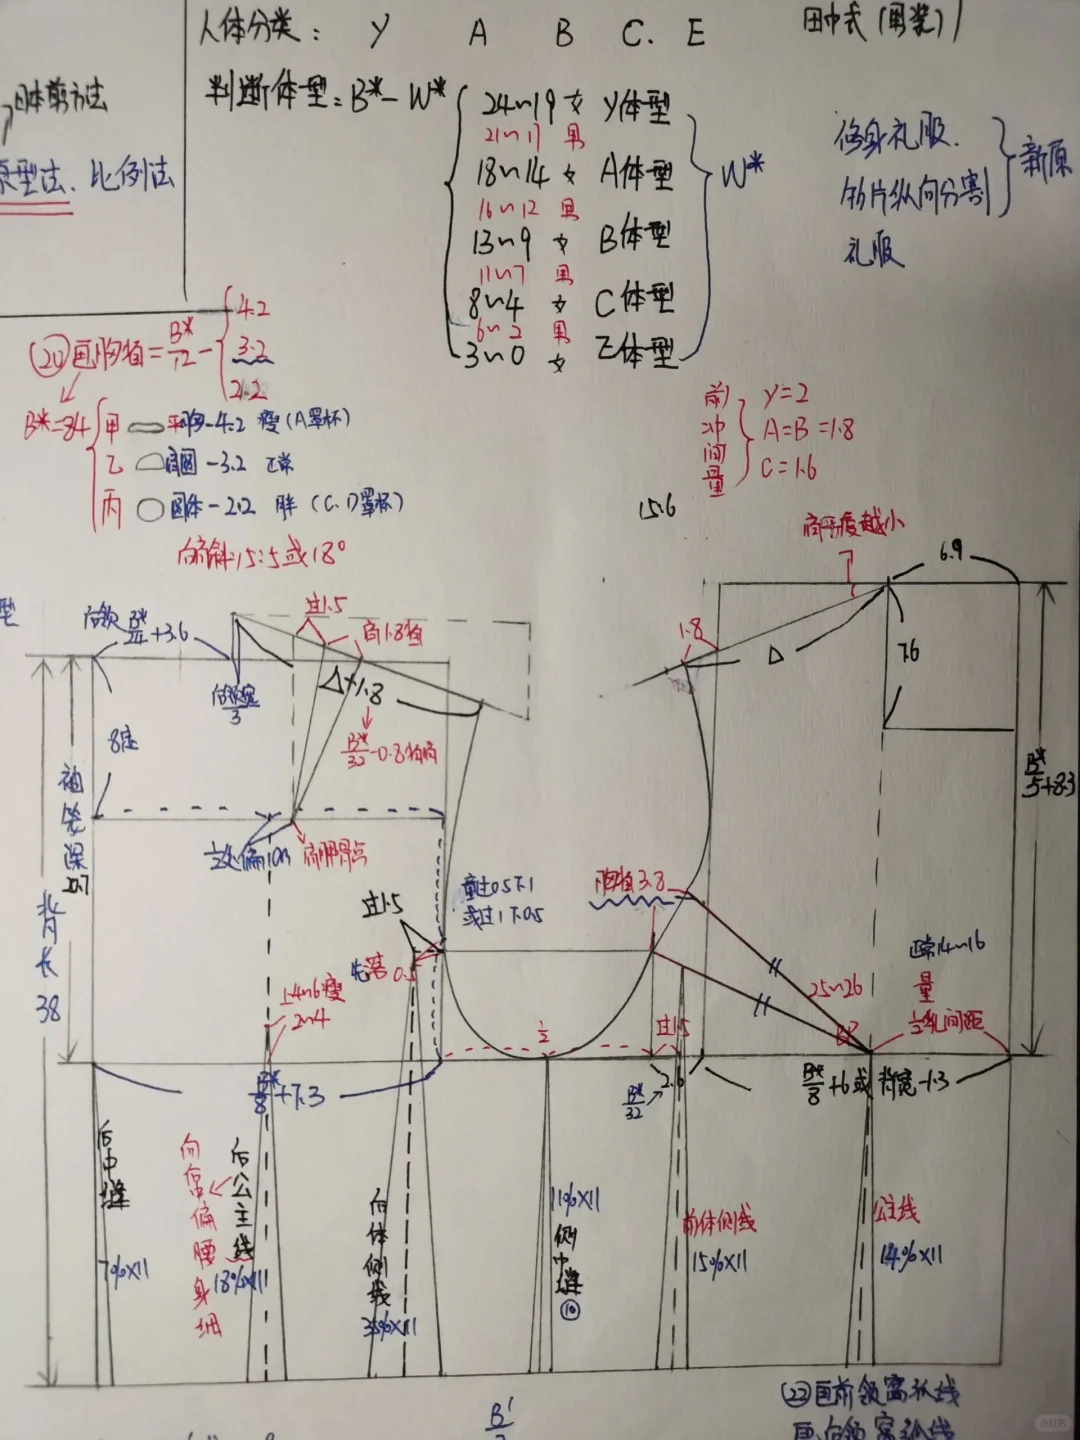 人体分类： Y A B C. E
田中式(男装)
判断体型=B*-W*
24~19 女 Y体型
21~17 男
18~14 女 A体型
16~12 男
13~9 女 B体型
11~7 男
8~4 女 C体型
6~2 男
3~0 女 Z体型
W*
修身礼服.
纵向分割
礼服
新原
日本剪方法
原型法、比例法
⑳画胸值=B*/12-
4.2
3.2
2.2
B*=84
甲 平胸-4.2 瘦(A罩杯)
乙 扁圆-3.2 正常
丙 圆体-2.2 胖(C.D罩杯)
后肩斜:15:5或18°
前冲间量
Y=2
A=B=1.8
C=1.6
15:6
肩平度越小
6.9
型
后领B*/24+3.6
过1.5
肩1.8省
1.8
△
7.6
后领宽/3
△+1.8
B*/32-0.8
8定
袖笼深
20.7
背长
38
B*/5+8.3
肩胛骨点
过1.5
量过0.5下1
或过1下0.5
胸省3.8
先落0.5
1.4~6瘦
2~4
25~26
正常14~16
量
½乳间距
½
过1.5
2.6
B*/8+7.3
B*/32
B*/8+6或背宽-1.3
后中缝
7%×11
向后中偏腰身细
后公主线
18%×11
后体侧线
35%×11
11%×11
侧中缝
⑩
前体侧线
15%×11
公主线
14%×11
㉒画前领窝弧线
画后领窝弧线
B'/2
小红书